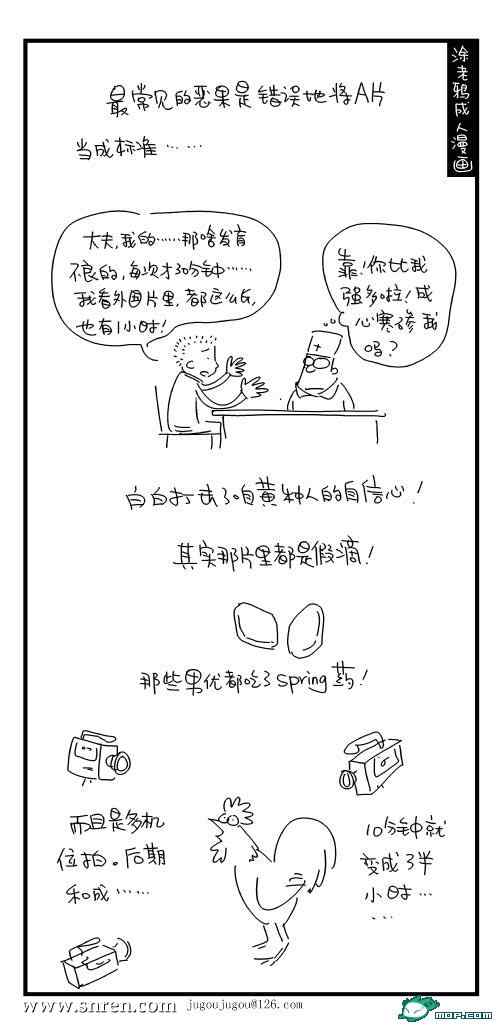 涂老鸦成人漫画
最常见的恶果是错误地将A片
当成标准……
大夫,我的……那啥发育
不良的,每次才30分钟……
我看外国片里,都这么长,
也有1小时!
靠!你比我
强多啦!成
心寒碜我
吗?
白白打击了咱黄种人的自信心!
其实那片里都是假滴!
那些男优都吃了spring药!
而且是多机
位拍。后期
和成……
10分钟就
变成了半
小时…
…
www.snren.com jugoujugou@126.com
MOP.COM